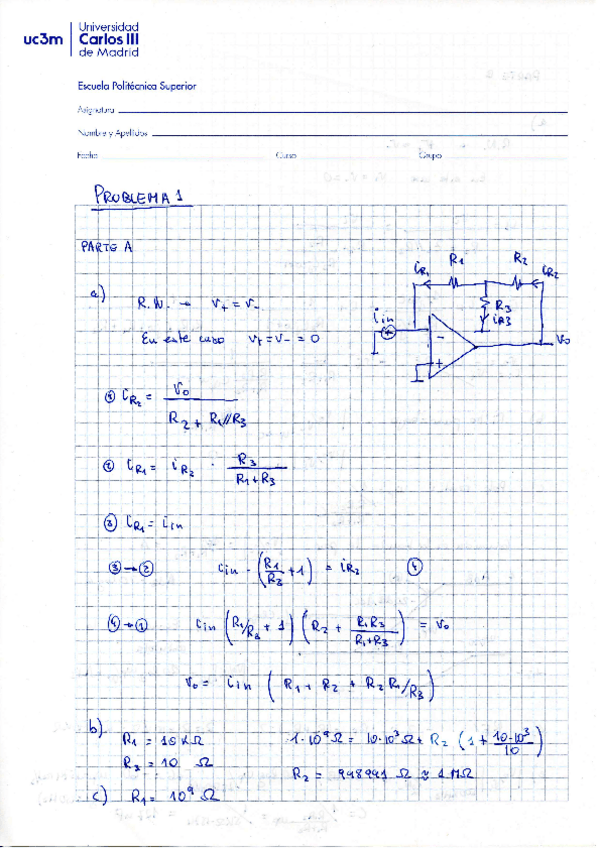 uc3m
Universidad
Carlos III
de Madrid
Escuela Politécnica Superior
Asignatura
Nombre y Apellidos
Fecha Curso Grupo
PROBLEMA 1
PARTE A
a) R.N. → V+ = V-
En este caso V+ = V- = 0
iR1 R1 R2 iR2
R3
iR3
iin
-
+
Vo
① iR2 = Vo / (R2 + R1//R3)
② iR1 = iR2 · R3 / (R1+R3)
③ iR1 = iin
③→② iin · (R1/R3 + 1) = iR2 ④
④→① iin (R1/R3 + 1) (R2 + R1R3/(R1+R3)) = Vo
Vo = iin (R1 + R2 + R2 R1/R3)
b) R1 = 10 kΩ 1·10⁹ Ω = 10·10³ Ω + R2 (1 + 10·10³/10)
R3 = 10 Ω
R2 = 998991 Ω ≈ 1 MΩ
c) R1 = 10⁹ Ω